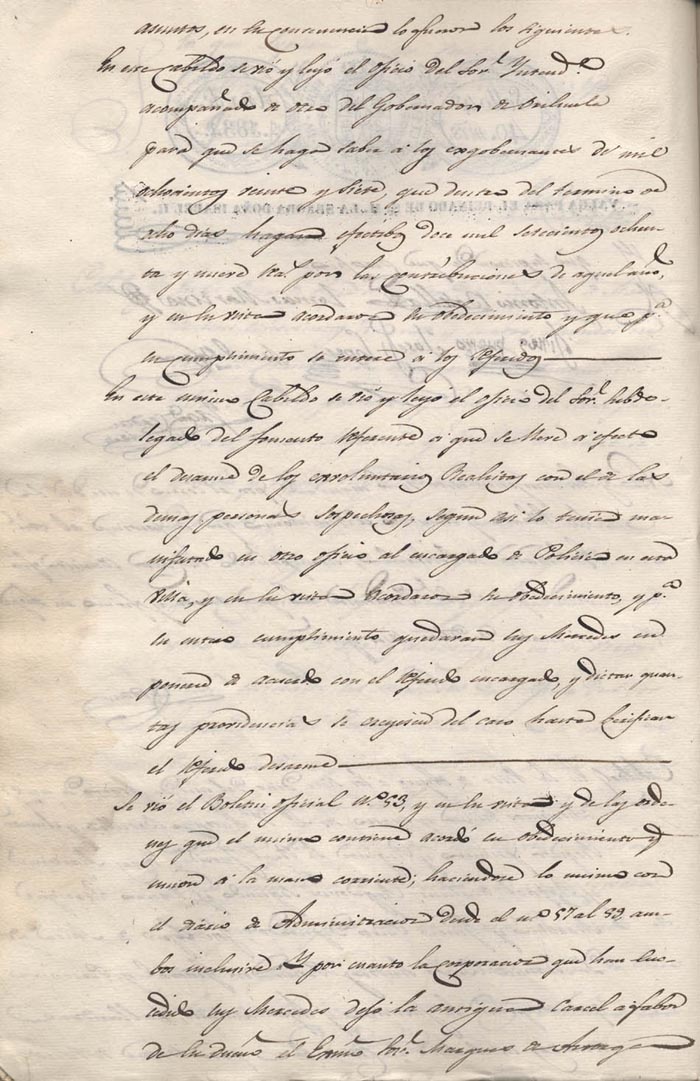 asuntos, en su consecuencia lo fueron los siguientes.
En este Cabildo se vió y leyó el oficio del Sor. Yntend.e
acompañado de otro del Gobernador de Orihuela
para que se haga saber á los exgobernantes de mil
ochocientos veinte y siete, que dentro del termino de
ocho dias hagan efectibos doce mil setecientos ochen-
ta y nueve rs. por las contribuciones de aquel año,
y en su vista acordaron su obedecimiento y que p.a
su cumplimiento se entere á los referidos
En este mismo Cabildo se vió y leyo el oficio del Sor. Subde-
legado del fomento referente á que se lleve á efecto
el desarme de los exvoluntarios Realistas con el de las
demas personas sospechosas, segun asi lo tiene ma-
nifestado en otro oficio al encargado de Policia en esta
Villa, y en su vista acordaron su obedecimiento, y p.a
su entero cumplimiento quedaran sus Mercedes en
ponerse de acuerdo con el referido encargado, y dictar quan-
tas providencias se exijiesen del caso hasta berificar
el referido desarme
Se vió el Boletin oficial n.o 53, y en su vista y de las orde-
nes que el mismo contiene acordó su obedecimiento y
union á la mano corriente; haciendose lo mismo con
el diario de Administracion desde el n.o 57 al 59 am-
bos inclusive. Y por cuanto la corporacion que han suc-
cedido sus Mercedes dejó la antigua Carcel á fabor
de su dueño el Exmo. Sor. Marques de